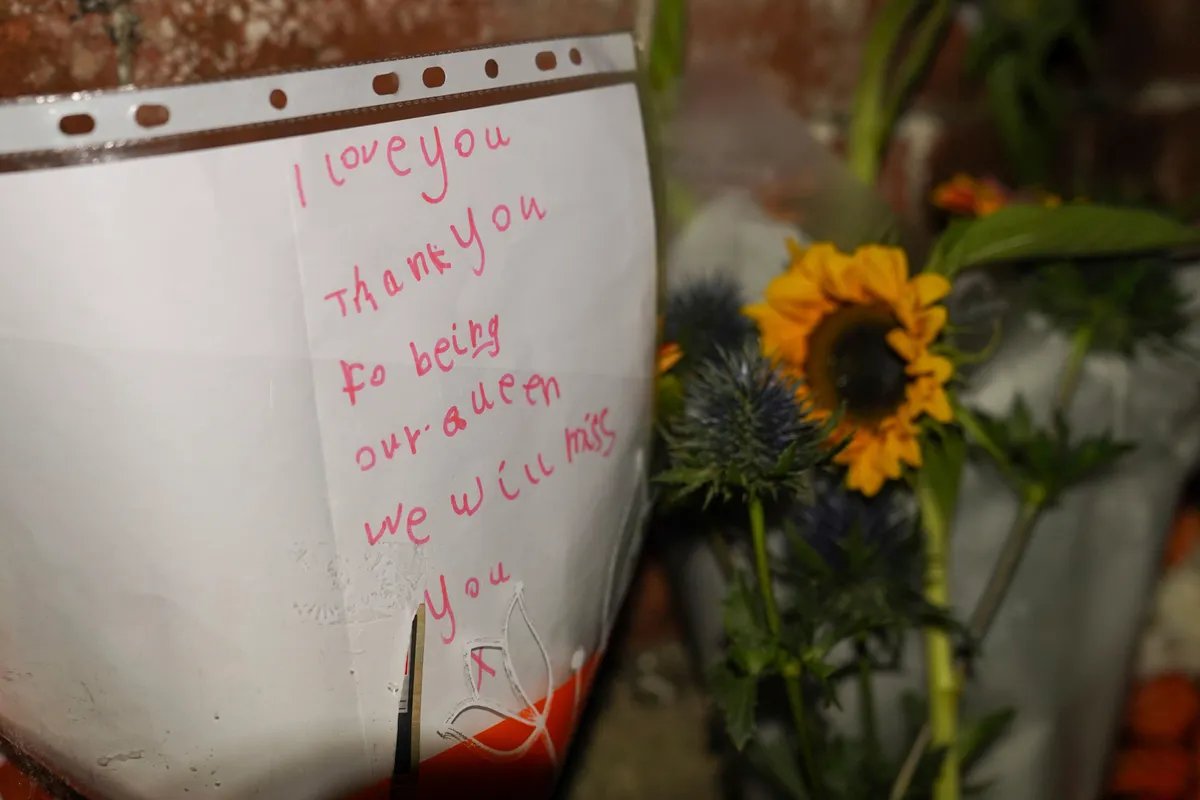 I love you
Thank you
fo being
our queen
we will miss
you
x